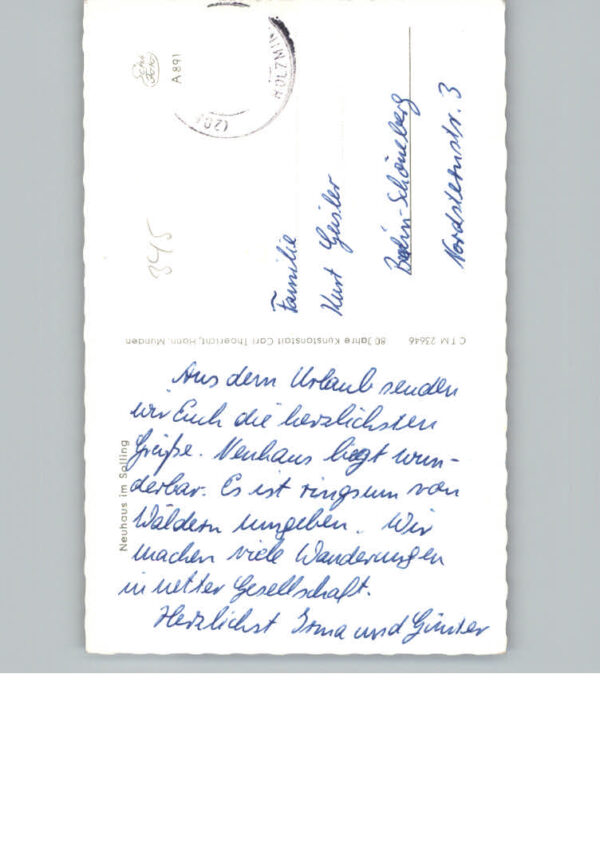 Aus dem Urlaub senden
wir Euch die herzlichsten
Grüße. Neuhaus liegt wun-
derbar. Es ist ringsum von
Wäldern umgeben. Wir
machen viele Wanderungen
in netter Gesellschaft.
Herzlichst Irma und Günter
Neuhaus im Solling
CTM 23646 80 Jahre Kunstanstalt Carl Thoericht, Hann. Münden
Familie
Kurt Geisler
Berlin-Schöneberg
Nordsternstr. 3
A 891
345
(20)
HOLZMIN